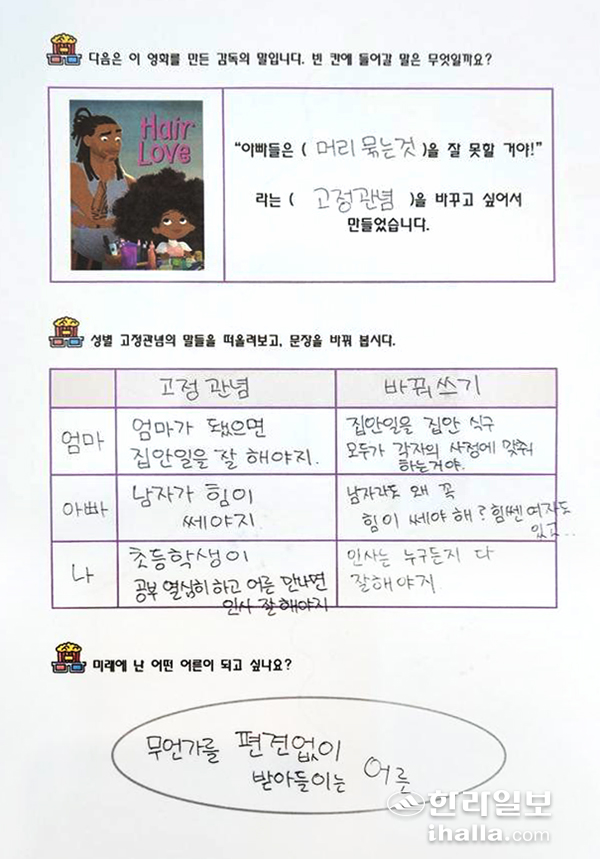 다음은 이 영화를 만든 감독의 말입니다. 빈 칸에 들어갈 말은 무엇일까요?
Hair
LOVE
"아빠들은 ( 머리 묶는것 )을 잘 못할 거야!"
라는 ( 고정관념 )을 바꾸고 싶어서
만들었습니다.
성별 고정관념의 말들을 떠올려보고, 문장을 바꿔 봅시다.
고정 관념
바꿔쓰기
엄마
엄마가 됐으면
집안일을 잘 해야지.
집안일을 집안 식구
모두가 각자의 사정에 맞춰
하는거야.
아빠
남자가 힘이
쎄야지.
남자라도 왜 꼭
힘이 쎄야 해? 힘쎈 여자도
있고...
나
초등학생이
공부 열심히 하고 어른 만나면
인사 잘해야지
인사는 누구든지 다
잘해야지.
미래에 난 어떤 어른이 되고 싶나요?
무언가를 편견없이
받아들이는 어른
한라일보
ihalla.com